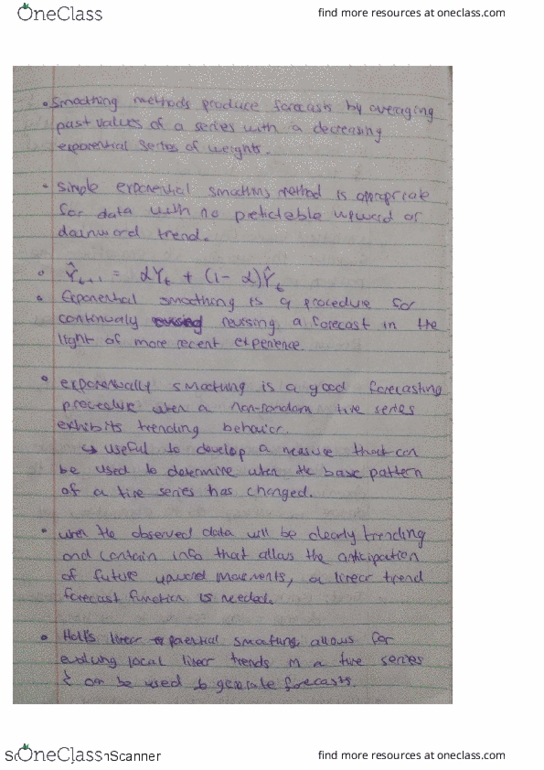 OneClass
find more resources at oneclass.com
• Smoothing methods produce forecasts by averaging
past values of a series with a decreasing
exponential series of weights.
• Simple exponential smoothing method is appropriate
for data with no predictable upward or
downward trend.
• Ŷt+1 = αYt + (1 - α)Ŷt
• Exponential smoothing is a procedure for
continually revising a forecast in the
light of more recent experience.
• exponentially smoothing is a good forecasting
procedure when a non-random time series
exhibits trending behavior.
↳ useful to develop a measure that can
be used to determine when the basic pattern
of a time series has changed.
• when the observed data will be clearly trending
and contain info that allows the anticipation
of future upward movements, a linear trend
forecast function is needed.
• Holt's linear exponential smoothing allows for
evolving local linear trends in a time series
& can be used to generate forecasts.
OneClass
Scanner
find more resources at oneclass.com